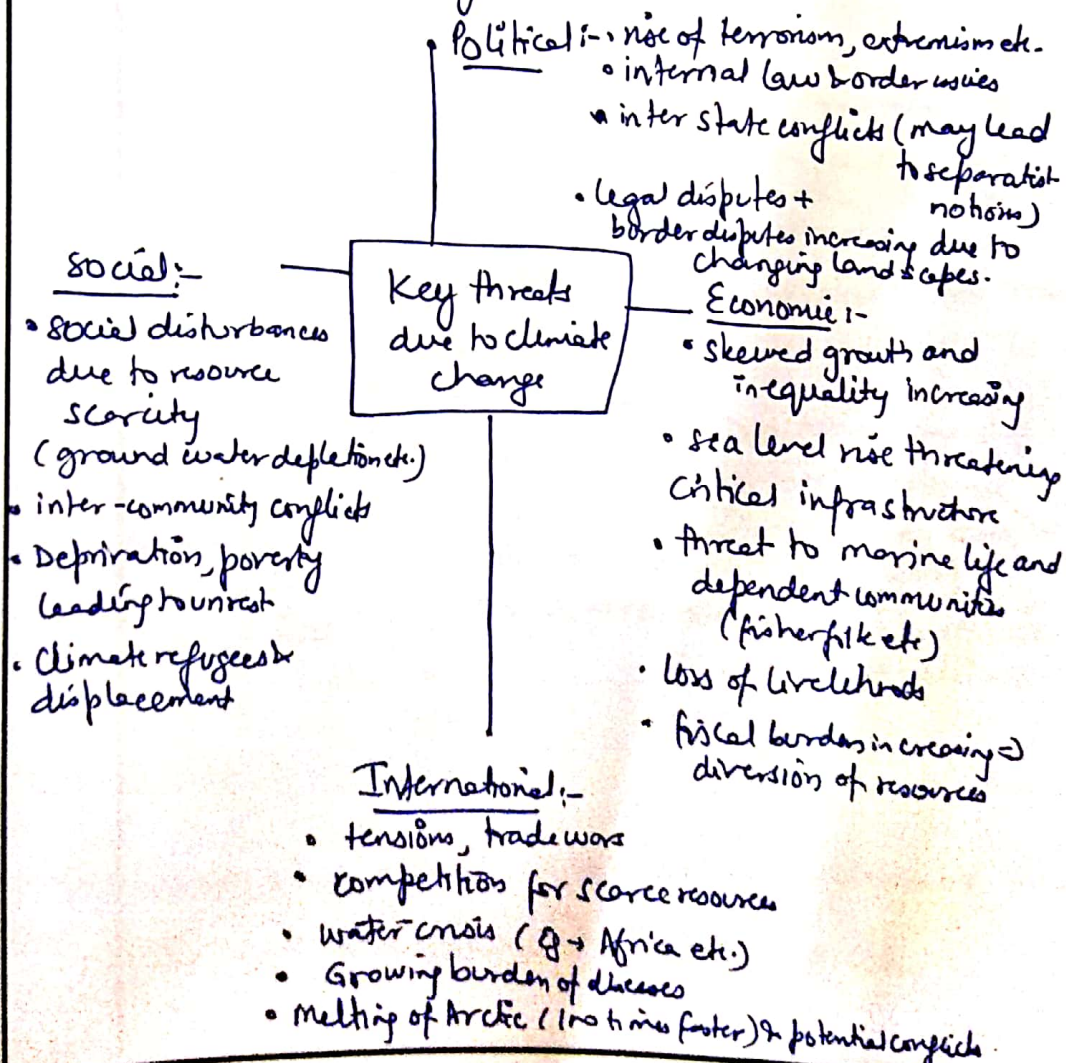 Political :- • rise of terrorism, extremism etc.
• internal law & order issues
• inter state conflicts (may lead
to separatist
notions)
• legal disputes +
border disputes increasing due to
changing landscapes.
Key threats
due to climate
change
Social :-
• social disturbances
due to resource
scarcity
(ground water depletion etc.)
• inter-community conflicts
• Deprivation, poverty
leading to unrest
• Climate refugees &
displacement
Economic :-
• skewed growth and
inequality increasing
• sea level rise threatening
critical infrastructure
• threat to marine life and
dependent communities
(fisherfolk etc)
• loss of livelihoods
• fiscal burden increasing ⇒
diversion of resources
International :-
• tensions, trade wars
• competition for scarce resources
• water crisis ( → Africa etc.)
• Growing burden of diseases
• melting of Arctic ( times faster) & potential conflicts.